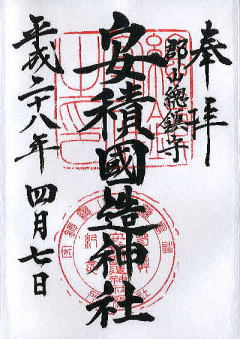 奉拝
郡山總鎮守
安積國造神社
平成二十八年四月七日